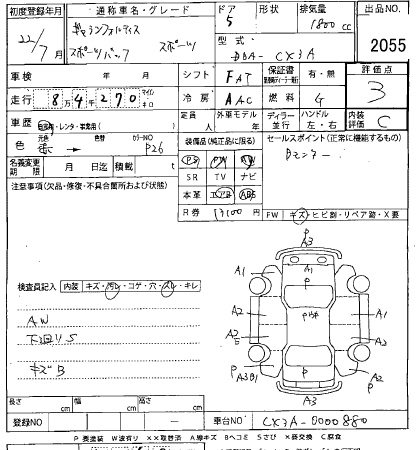 初度登録年月 通称車名・グレード ドア 形状 排気量 出品NO.
22/7 ギャランフォルティス スポーツバック スポーツ 5 1800 cc 2055
型式 DBA-CX3A
車検 年 月 シフト FAT 保証書 有・無 評価点
走行 8万4千270 マイル キロ 冷房 AAC 燃料 G 3
車歴 自家用・レンタ・事業用( ) 定員 人 外車モデル 年 ディーラー 並行 ハンドル 左・右 内装 C
色 色替 カラーNO P26 装備品(純正品に限る) セールスポイント(正常に機能するもの)
PS PW AW
名義変更期限 月 日 積載 t SR TV ナビ
注意事項(欠品・修復・不具合箇所および状態) 本革 エアB ABS
R券 FW キズ・ヒビ割・リペア跡・X要
検査員記入 内装 キズ・汚れ・コゲ・穴・スレ・キレ
AW
下廻りS
キズB
A3
A1 A1 A1
A2 A1
A2 A2
P P
A3
長さ cm 幅 cm 高さ cm
登録NO 車台NO CX3A-0000880
P 要塗装 W波有り XX取替済 A線キズ Bヘコミ Sさび X要交換 C腐食